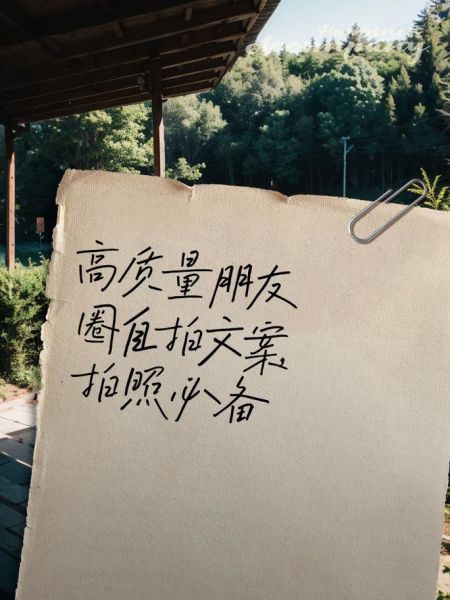 高质量朋友
圈自拍文案
拍照必备